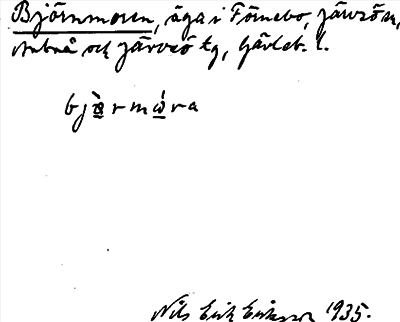 Björnmoren, äga i Förnebo, Järvsö sn,
Arbrå och Järvsö tg, Gävleb. l.
bjæ̀rmώra
Nils Erik Eriksson 1935.